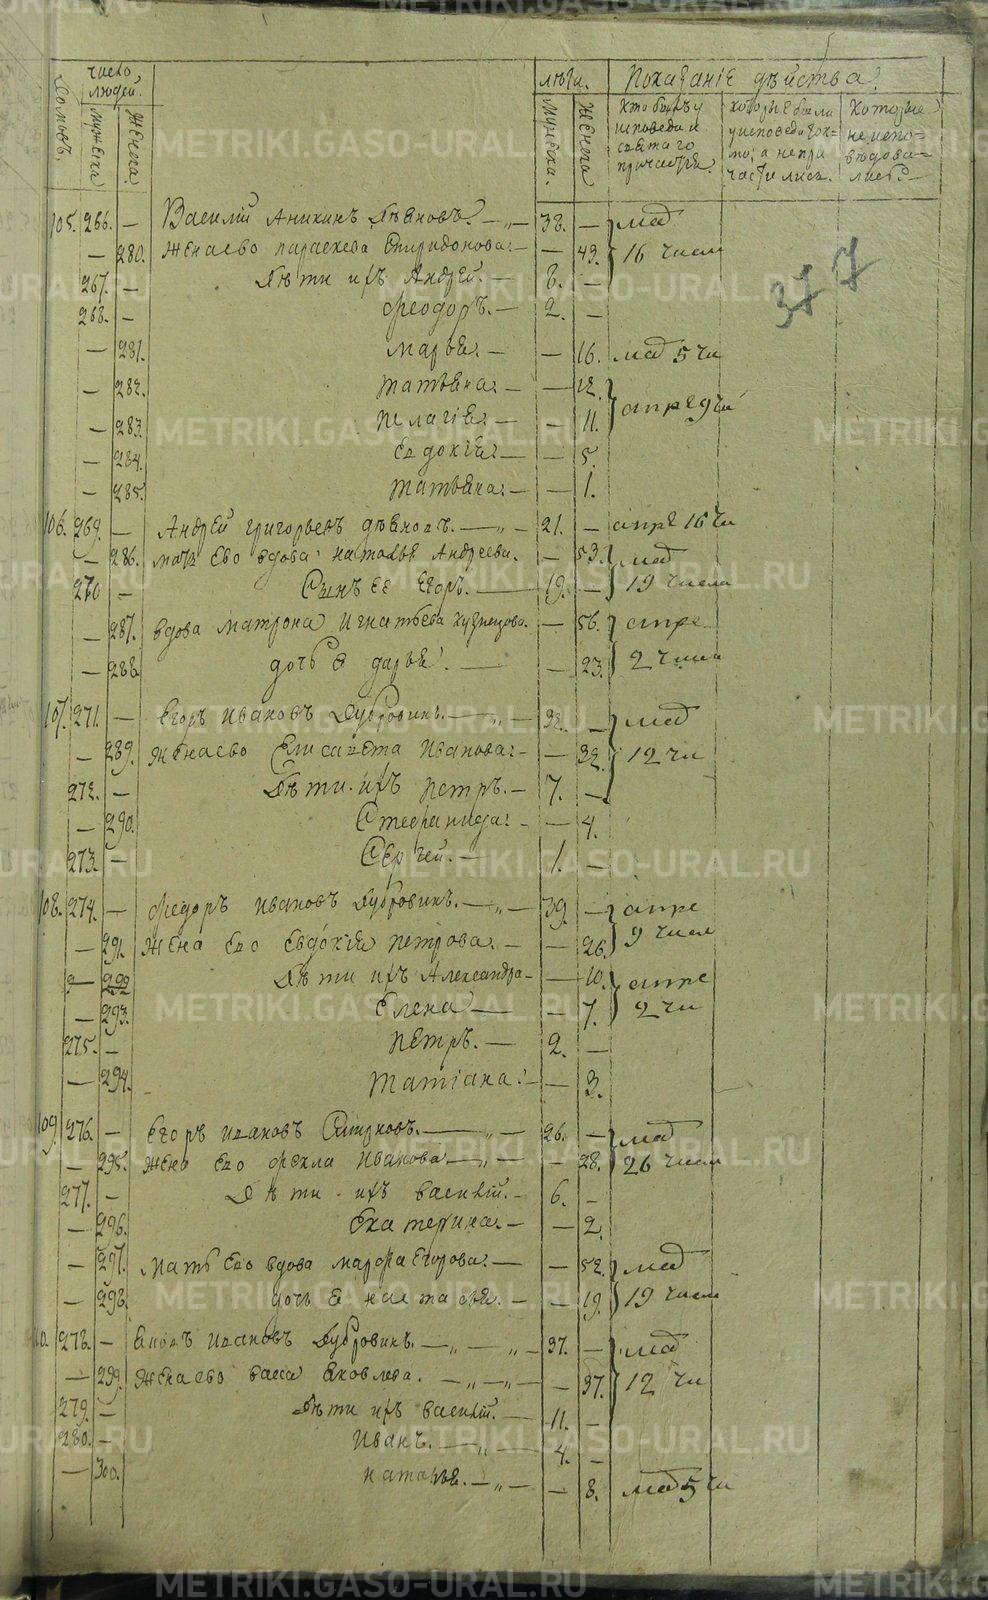 число людей.
лѣта.
Показаніе дѣйства.
Домовъ.
мужеска
женска.
мужеска.
женска
кто былъ у исповеди и святаго причастия.
которые были у исповеди токмо, а не причастились.
которые не исповѣдовались.
377
105. 266. — Василий Аникинъ — 38. — мая
— 280. Жена ево параскева Спиридонова. — 43. 16 числа
267. — Дѣти ихъ Андрей. — 8. —
268. — феодоръ. — 2. —
— 281. марья. — — 16. мая 5 чи
— 282. татьяна. — — 12.
— 283. пелагія — — 11. апре 9 чи
— 284. Евдокія — — 5.
— 285. татьяна. — — 1.
106. 269. — Андрей григорьевъ — 21. — апре 16 чи
— 286. мать ево вдова наталья Андреева. — 53. мая
270 — Сынъ ее Егоръ. — 19. — 19 числа
— 287. вдова матрона Игнатьева кузнецова. — 56. апре
— 288. дочь Я дарья. — — 23. 2 числа
107. 271. — Егоръ Ивановъ Дубровинъ. — 32. — мая
— 289. Жена ево Елисавета Иванова. — 32. 12 чи
272. — Дѣти ихъ петръ. — 7. —
— 290. Стефанида. — — 4.
273. — Сергей. — 1. —
108. 274. — федоръ Ивановъ Дубровинъ. — 39. — апре
— 291. Жена Ево Евдокія петрова. — — 26. 9 числ
— 292 Дѣти ихъ Александра — — 10. апре
— 293. Елена — — 7. 2 чи
275. — петръ. — 2. —
— 294. татіана. — — 3.
109. 276. — Егоръ Ивановъ — 26. — мая
— 295. Жена Ево фекла Иванова — — 28. 26 числа
277. — Дѣти ихъ василій. — 6. —
— 296. Екатерина. — — 2.
— 297. мать Ево вдова марфа Егорова. — — 52. мая
— 298. дочь Я настасья. — — 19. 19 числа
278. — Ивановъ Дубровинъ. — 37. — мая
— 299. Жена ево васса Яковлева. — — 37. 12 чи
279. — Дѣти ихъ василій. — 11. —
280. — Иванъ. — 4. —
— 300. наталья. — — 8. мая 5 чи